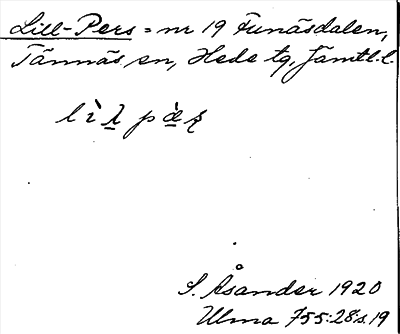 Lill-Pers = nr 19 Funäsdalen,
Tännäs sn, Hede tg, Jämtl. l.
S. Åsander 1920
Ulma 755:28 s. 19